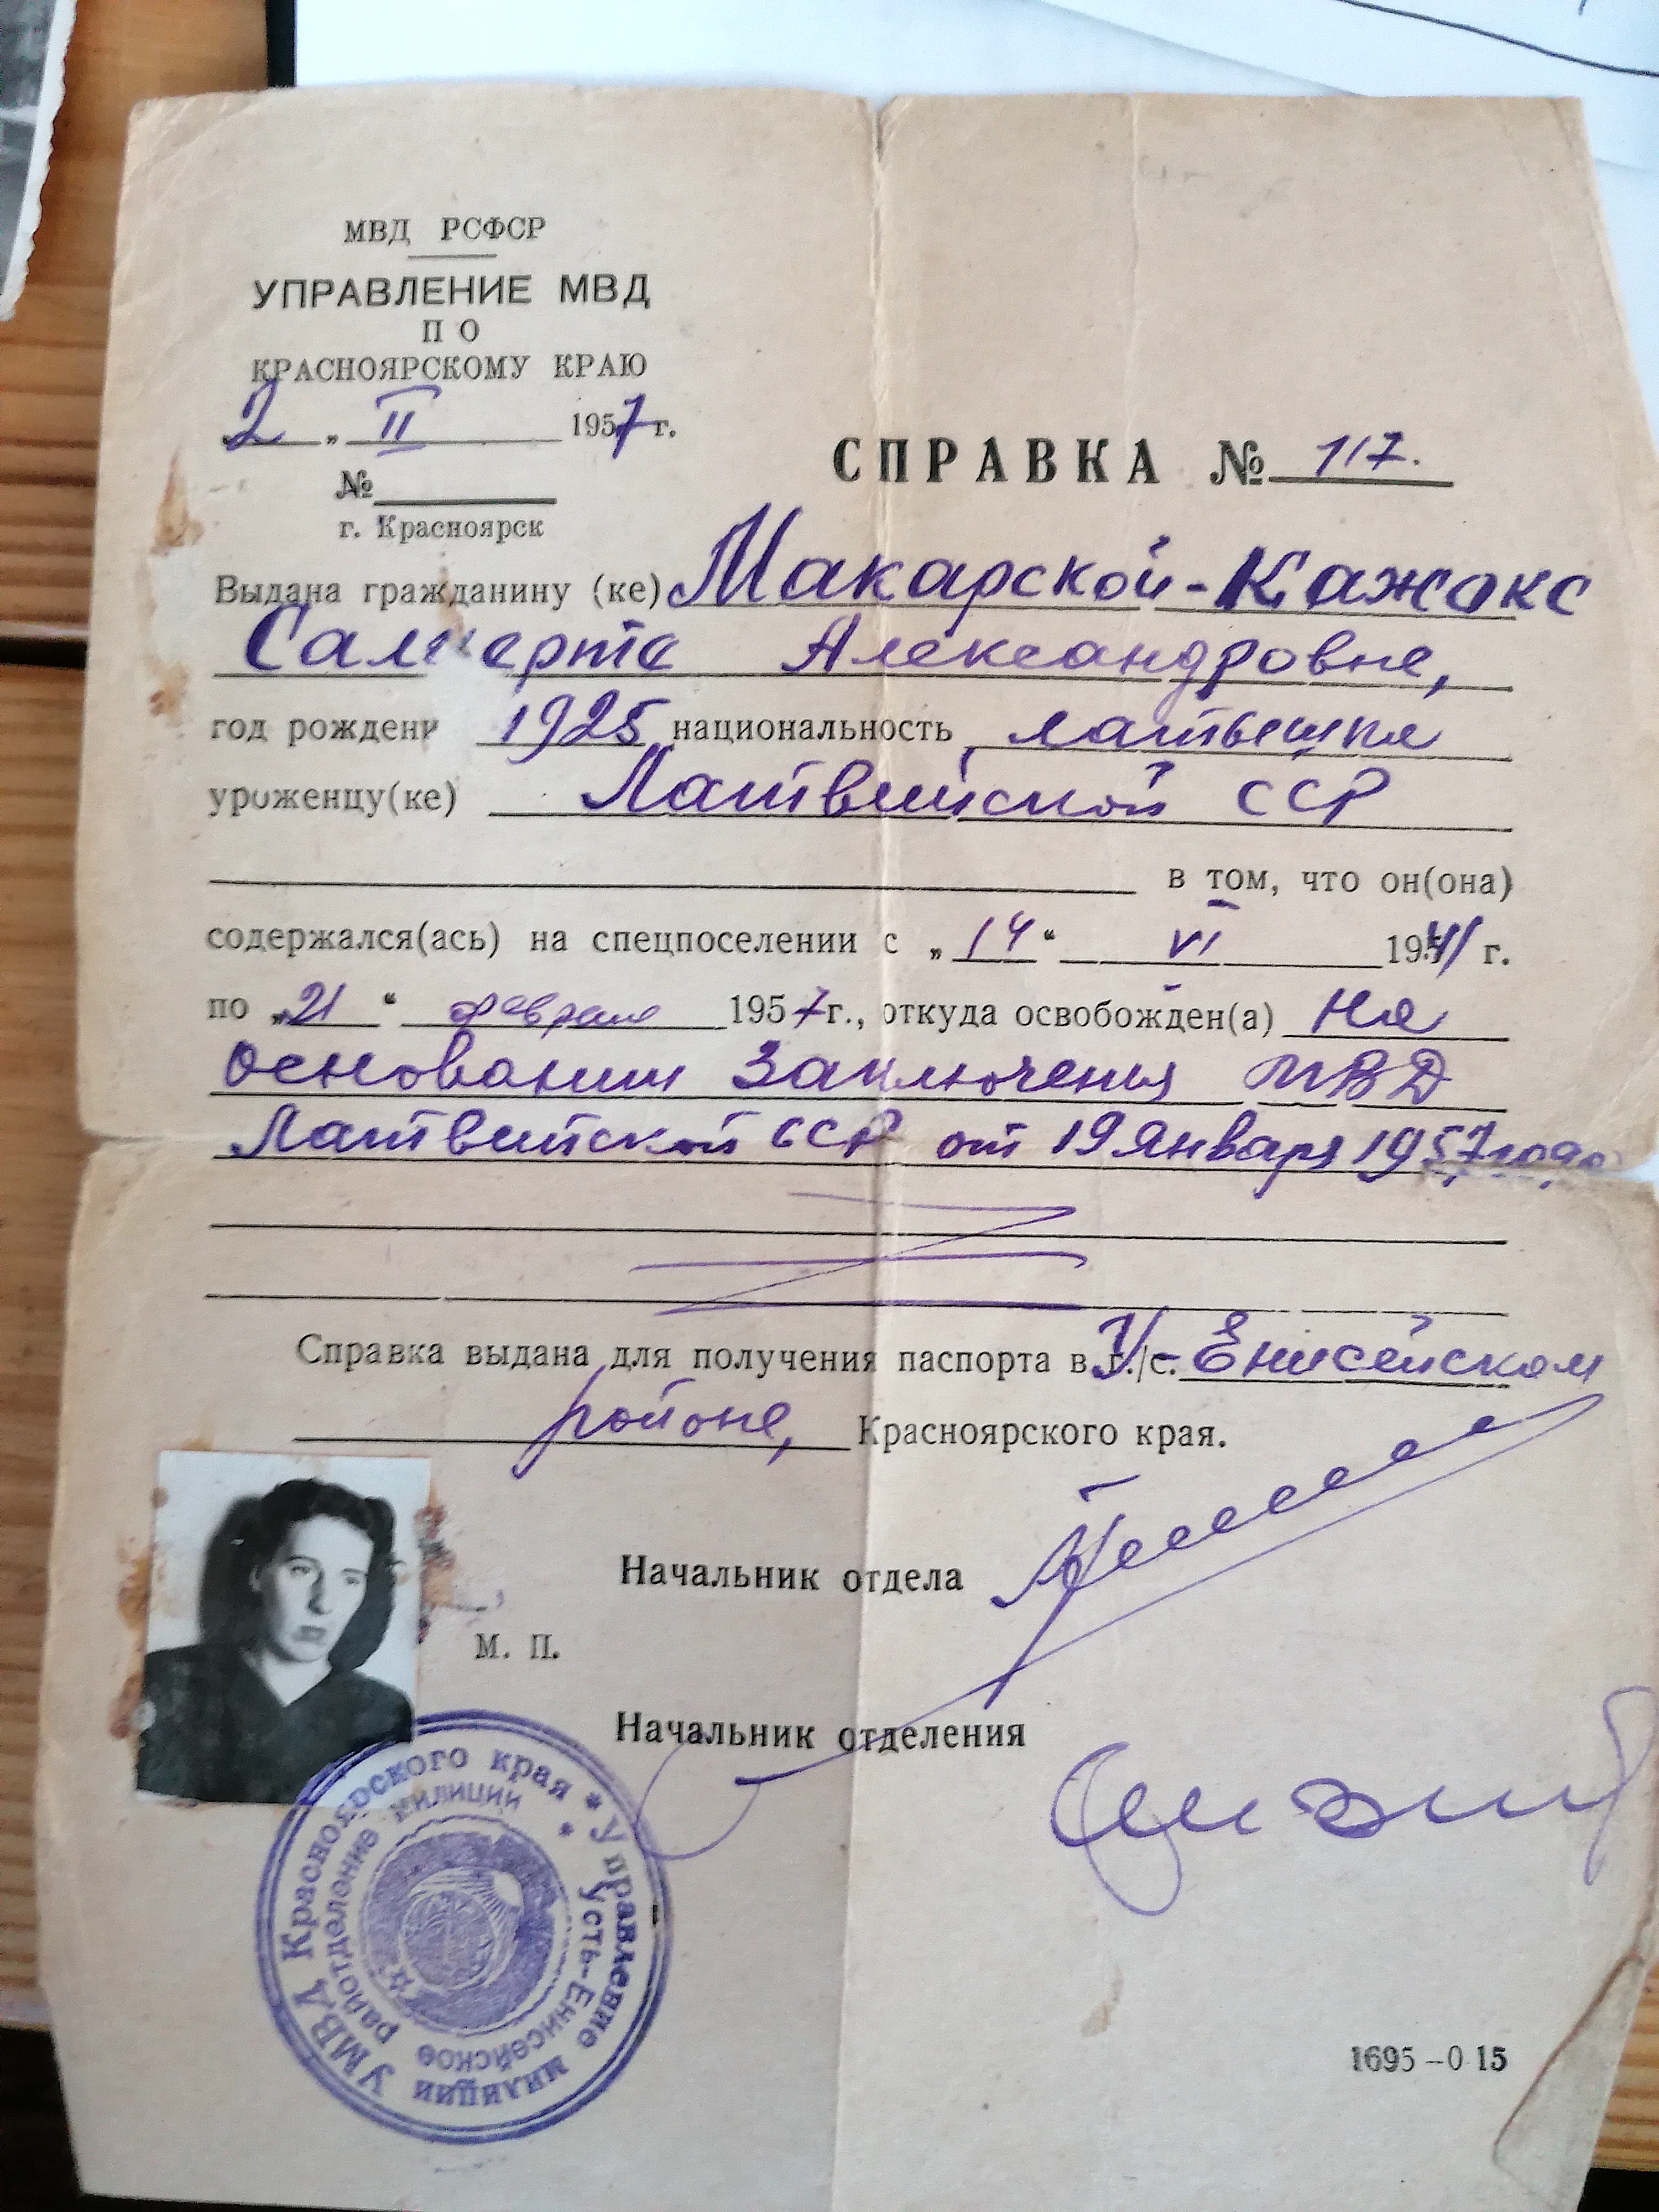 МВД РСФСР
УПРАВЛЕНИЕ МВД
ПО
КРАСНОЯРСКОМУ КРАЮ
2 „ II 1957 г.
№
г. Красноярск
СПРАВКА № 117.
Выдана гражданину (ке) Макарской-Кажокс
Александровне,
год рождени 1925 национальность латышка
уроженцу(ке) Латвийской ССР
в том, что он(она)
содержался(ась) на спецпоселении с „14“ VI 1941 г.
по „21“ февраля 1957 г., откуда освобожден(а) На
основании Заключения МВД
Латвийской ССР от 19 Января 1957 года
Справка выдана для получения паспорта в г./с. У-Енисейском
районе, Красноярского края.
Начальник отдела
М. П.
Начальник отделения
УМВД Красноярского края * Управление милиции
Усть-Енисейское райотделение милиции *
1695-0 15